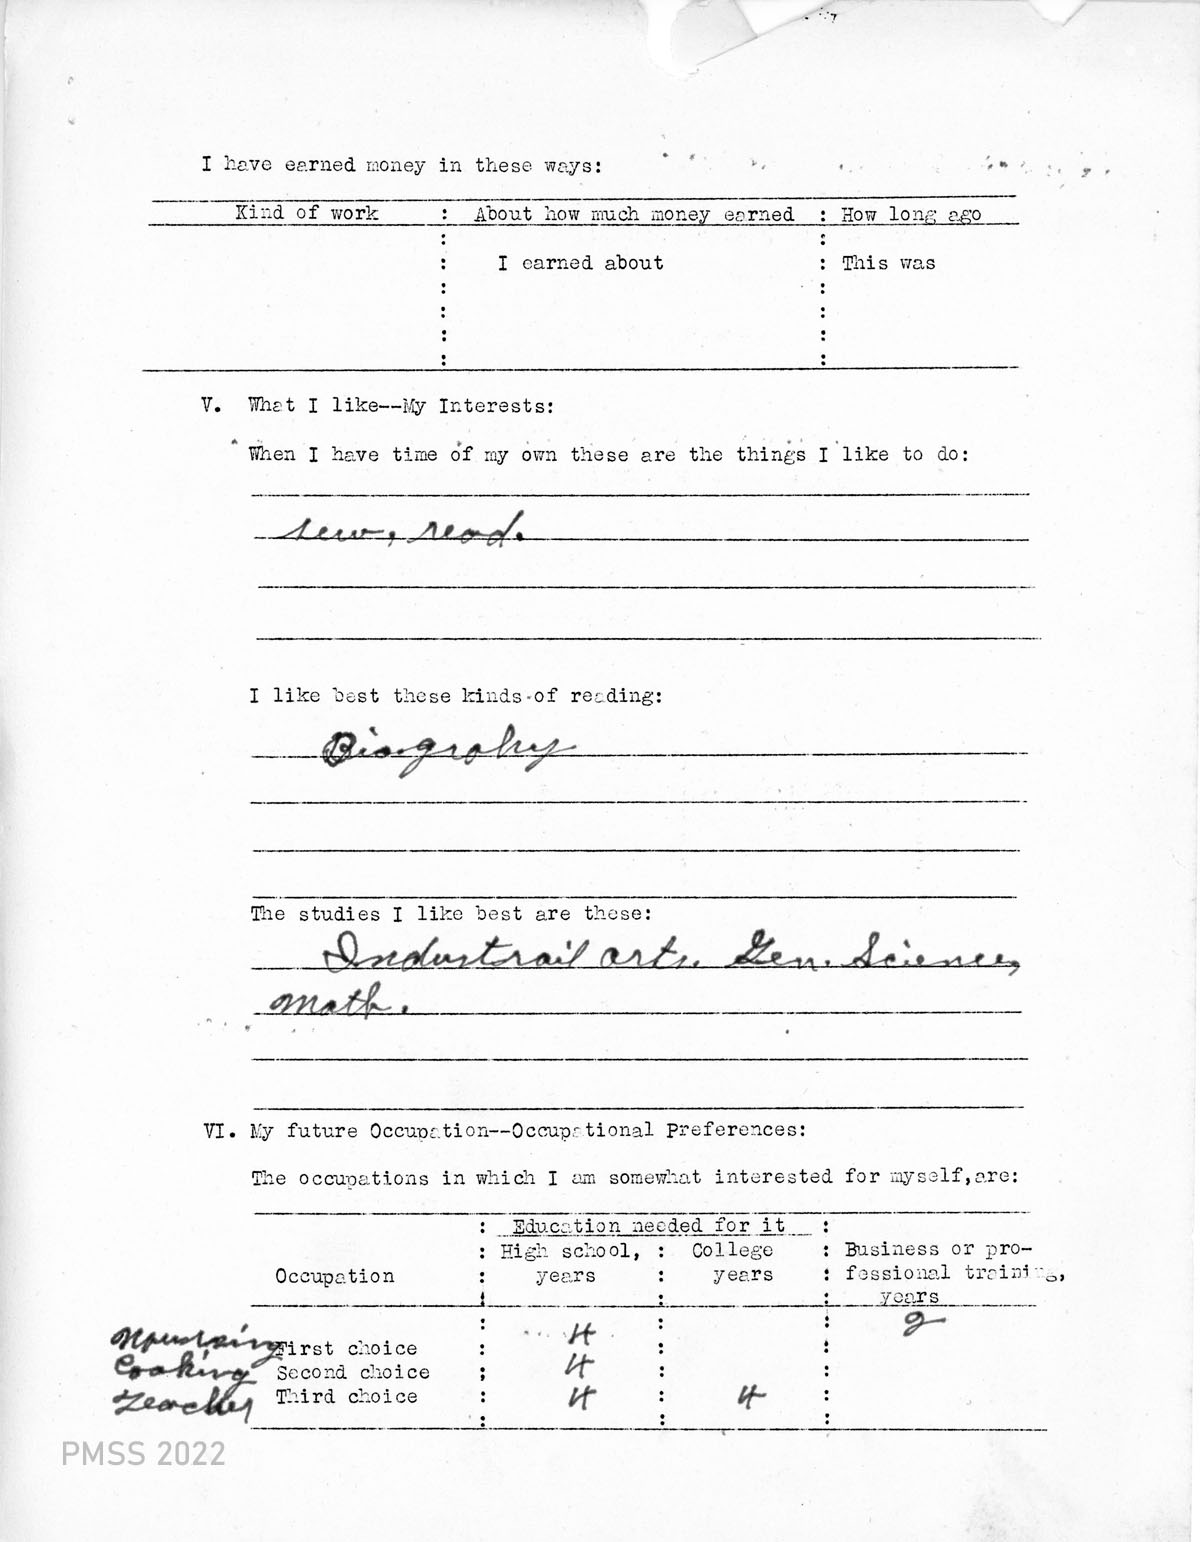 I have earned money in these ways:
Kind of work : About how much money earned : How long ago
I earned about : This was
V. What I like--My Interests:
When I have time of my own these are the things I like to do:
sew, read.
I like best these kinds of reading:
Biograhy
The studies I like best are these:
Industrail arts, Gen. Science,
Math.
VI. My future Occupation--Occupational Preferences:
The occupations in which I am somewhat interested for myself, are:
: Education needed for it :
: High school, : College : Business or pro-
Occupation : years : years : fessional training,
years
2
First choice : 4
Cooking Second choice : 4
Teacher Third choice : 4 : 4
PMSS 2022